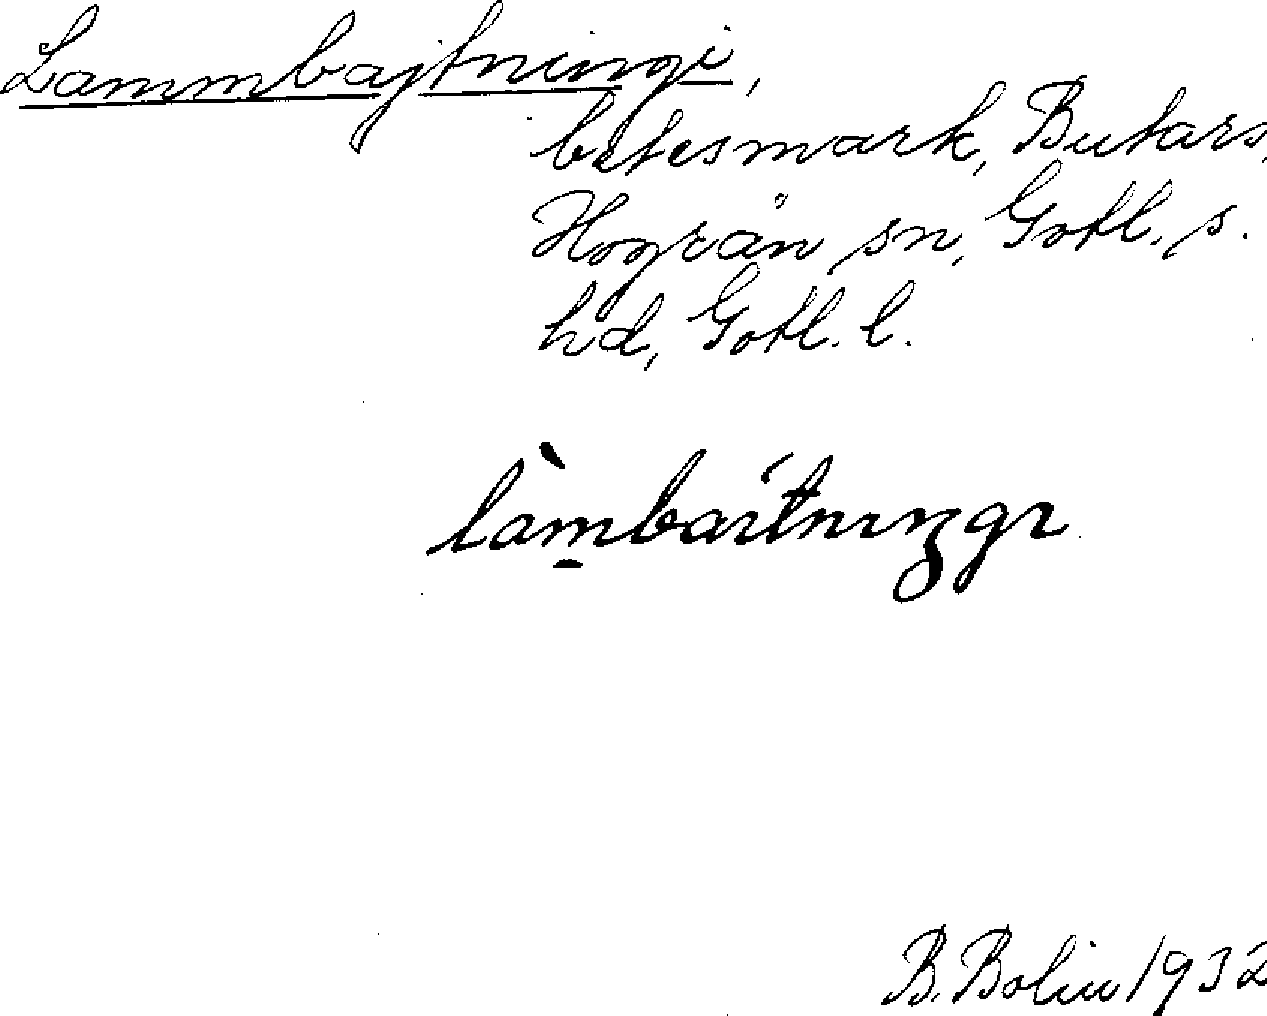 Lammbajtningi,
betesmark, Butars,
Hogrän sn, Gotl. s.
hd, Gotl. l.
làmbaítnıŋgı
B. Bolin 1932